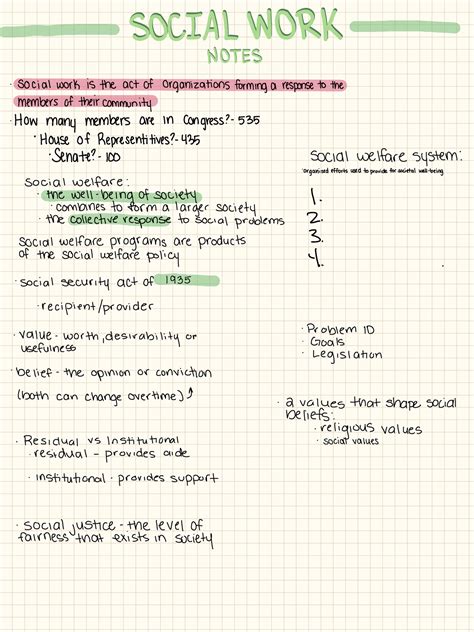 SOCIAL WORK
NOTES
· Social work is the act of organizations forming a response to the
members of their community
· How many members are in Congress?- 535
· House of Representitives?- 435
· Senate?- 100
Social welfare:
· the well-being of society
· combines to form a larger society
· the collective response to social problems
Social welfare programs are products
of the social welfare policy
· social security act of 1935
· recipient/provider
· value - worth, desirability or
usefulness
· belief - the opinion or conviction
(both can change overtime)
· Residual vs Institutional
· residual - provides aide
· institutional - provides support
· social justice - the level of
fairness that exists in society
Social welfare system:
Organized efforts used to provide for societal well-being
1.
2.
3.
4.
· Problem ID
· Goals
· Legislation
· 2 values that shape social
beliefs:
· religious values
· social values